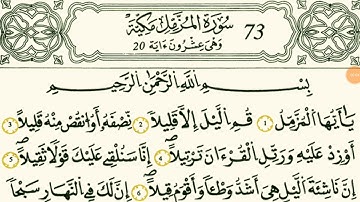 سُورَةُ المُزَّمِّل مَكِّيَّة 73
وَهْىَ عِشْرُونَ ءَايَة 20
بِسْمِ اللَّهِ الرَّحْمَٰنِ الرَّحِيمِ
يَٰٓأَيُّهَا الْمُزَّمِّلُ 1 قُمِ الَّيْلَ إِلَّا قَلِيلًا 2 نِّصْفَهُ أَوُ انقُصْ مِنْهُ قَلِيلًا 3
أَوْ زِدْ عَلَيْهِ وَرَتِّلِ الْقُرْءَانَ تَرْتِيلًا 4 إِنَّا سَنُلْقِى عَلَيْكَ قَوْلًا ثَقِيلًا 5
إِنَّ نَاشِئَةَ الَّيْلِ هِىَ أَشَدُّ وَطْـًٔا وَأَقْوَمُ قِيلًا 6 إِنَّ لَكَ فِى النَّهَارِ سَبْحًا